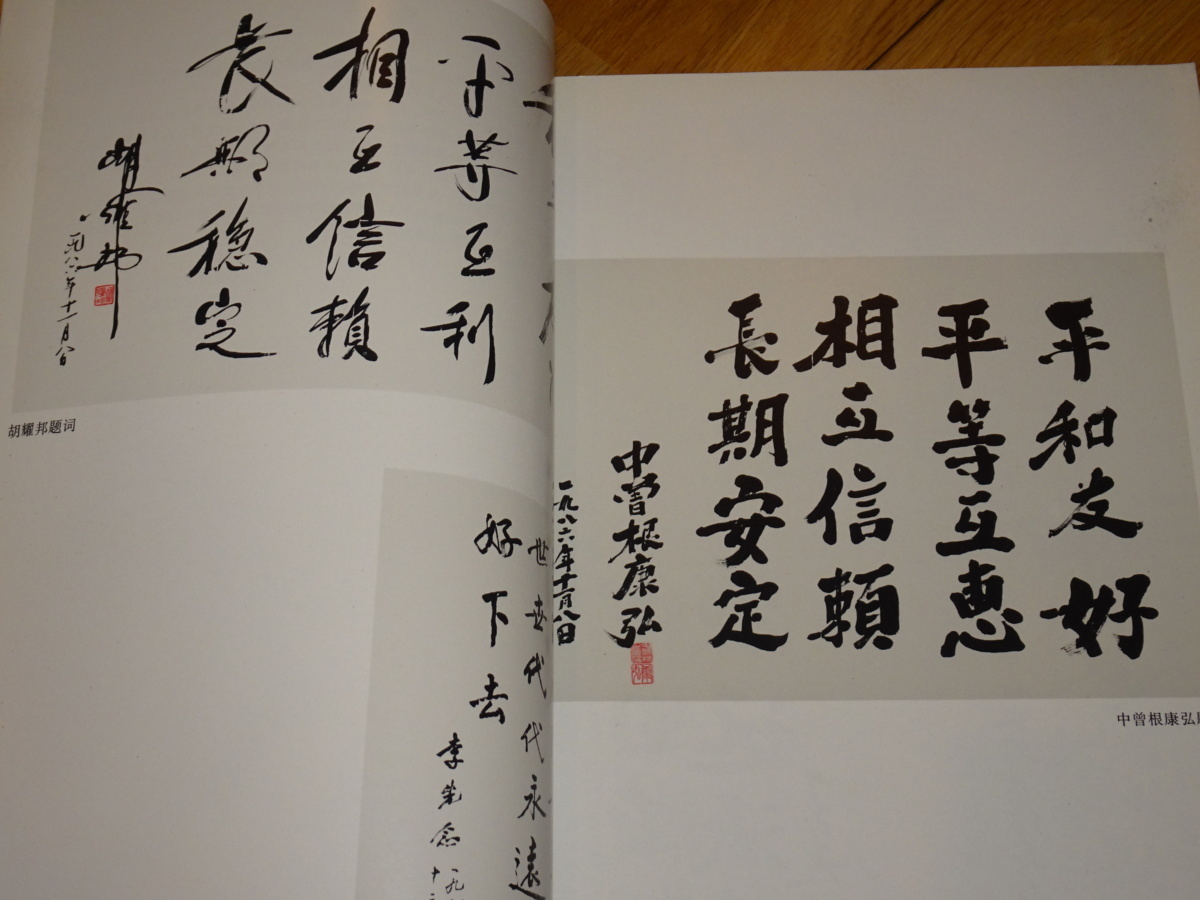 平等互利
相互信賴
長期穩定
胡耀邦
一九八六年十一月八日
胡耀邦题词
世世代代永遠
好下去
李先念
平和友好
平等互恵
相互信頼
長期安定
中曽根康弘
一九八六年十一月八日
中曾根康弘